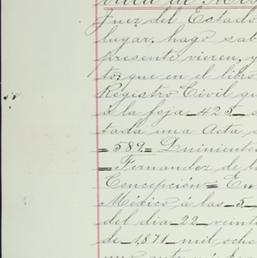 Juez del Estado
lugar, hago sab
presente vieren, y
tos que en el libro
Registro Civil qu
á la foja 425 s
tada una Acta d
= 589 = Quinientos
= Fernandez de l
Concepcion = En
México, á las 5
del dia 22 veint
de 1871 mil ocho